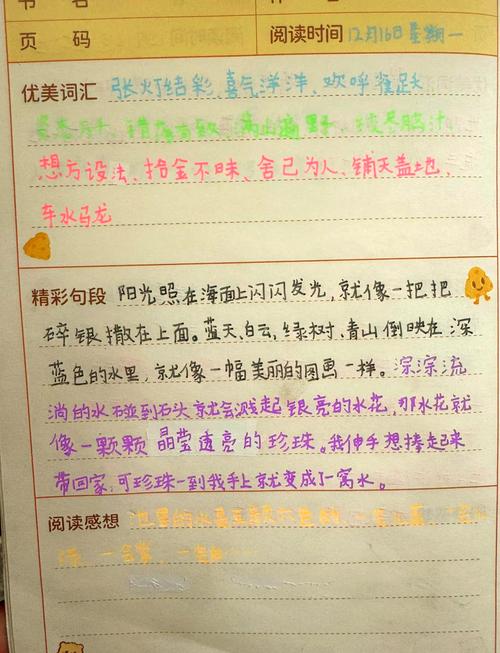 书 名
页 码 阅读时间 12月16日星期一
优美词汇 张灯结彩、喜气洋洋、欢呼雀跃
错落有致、满山遍野、绞尽脑汁、
想方设法、拾金不昧、舍己为人、铺天盖地、
车水马龙
精彩句段 阳光照在海面上闪闪发光,就像一把把
碎银撒在上面。蓝天、白云,绿树、青山倒映在深
蓝色的水里,就像一幅美丽的图画一样。淙淙流
淌的水碰到石头就会溅起银亮的水花,那水花就
像一颗颗晶莹透亮的珍珠。我伸手想捧起来
带回家,可珍珠一到我手上就变成了一窝水。
阅读感想